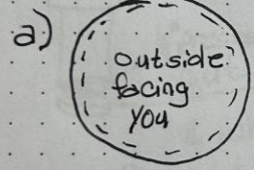 a)
outside
facing
you